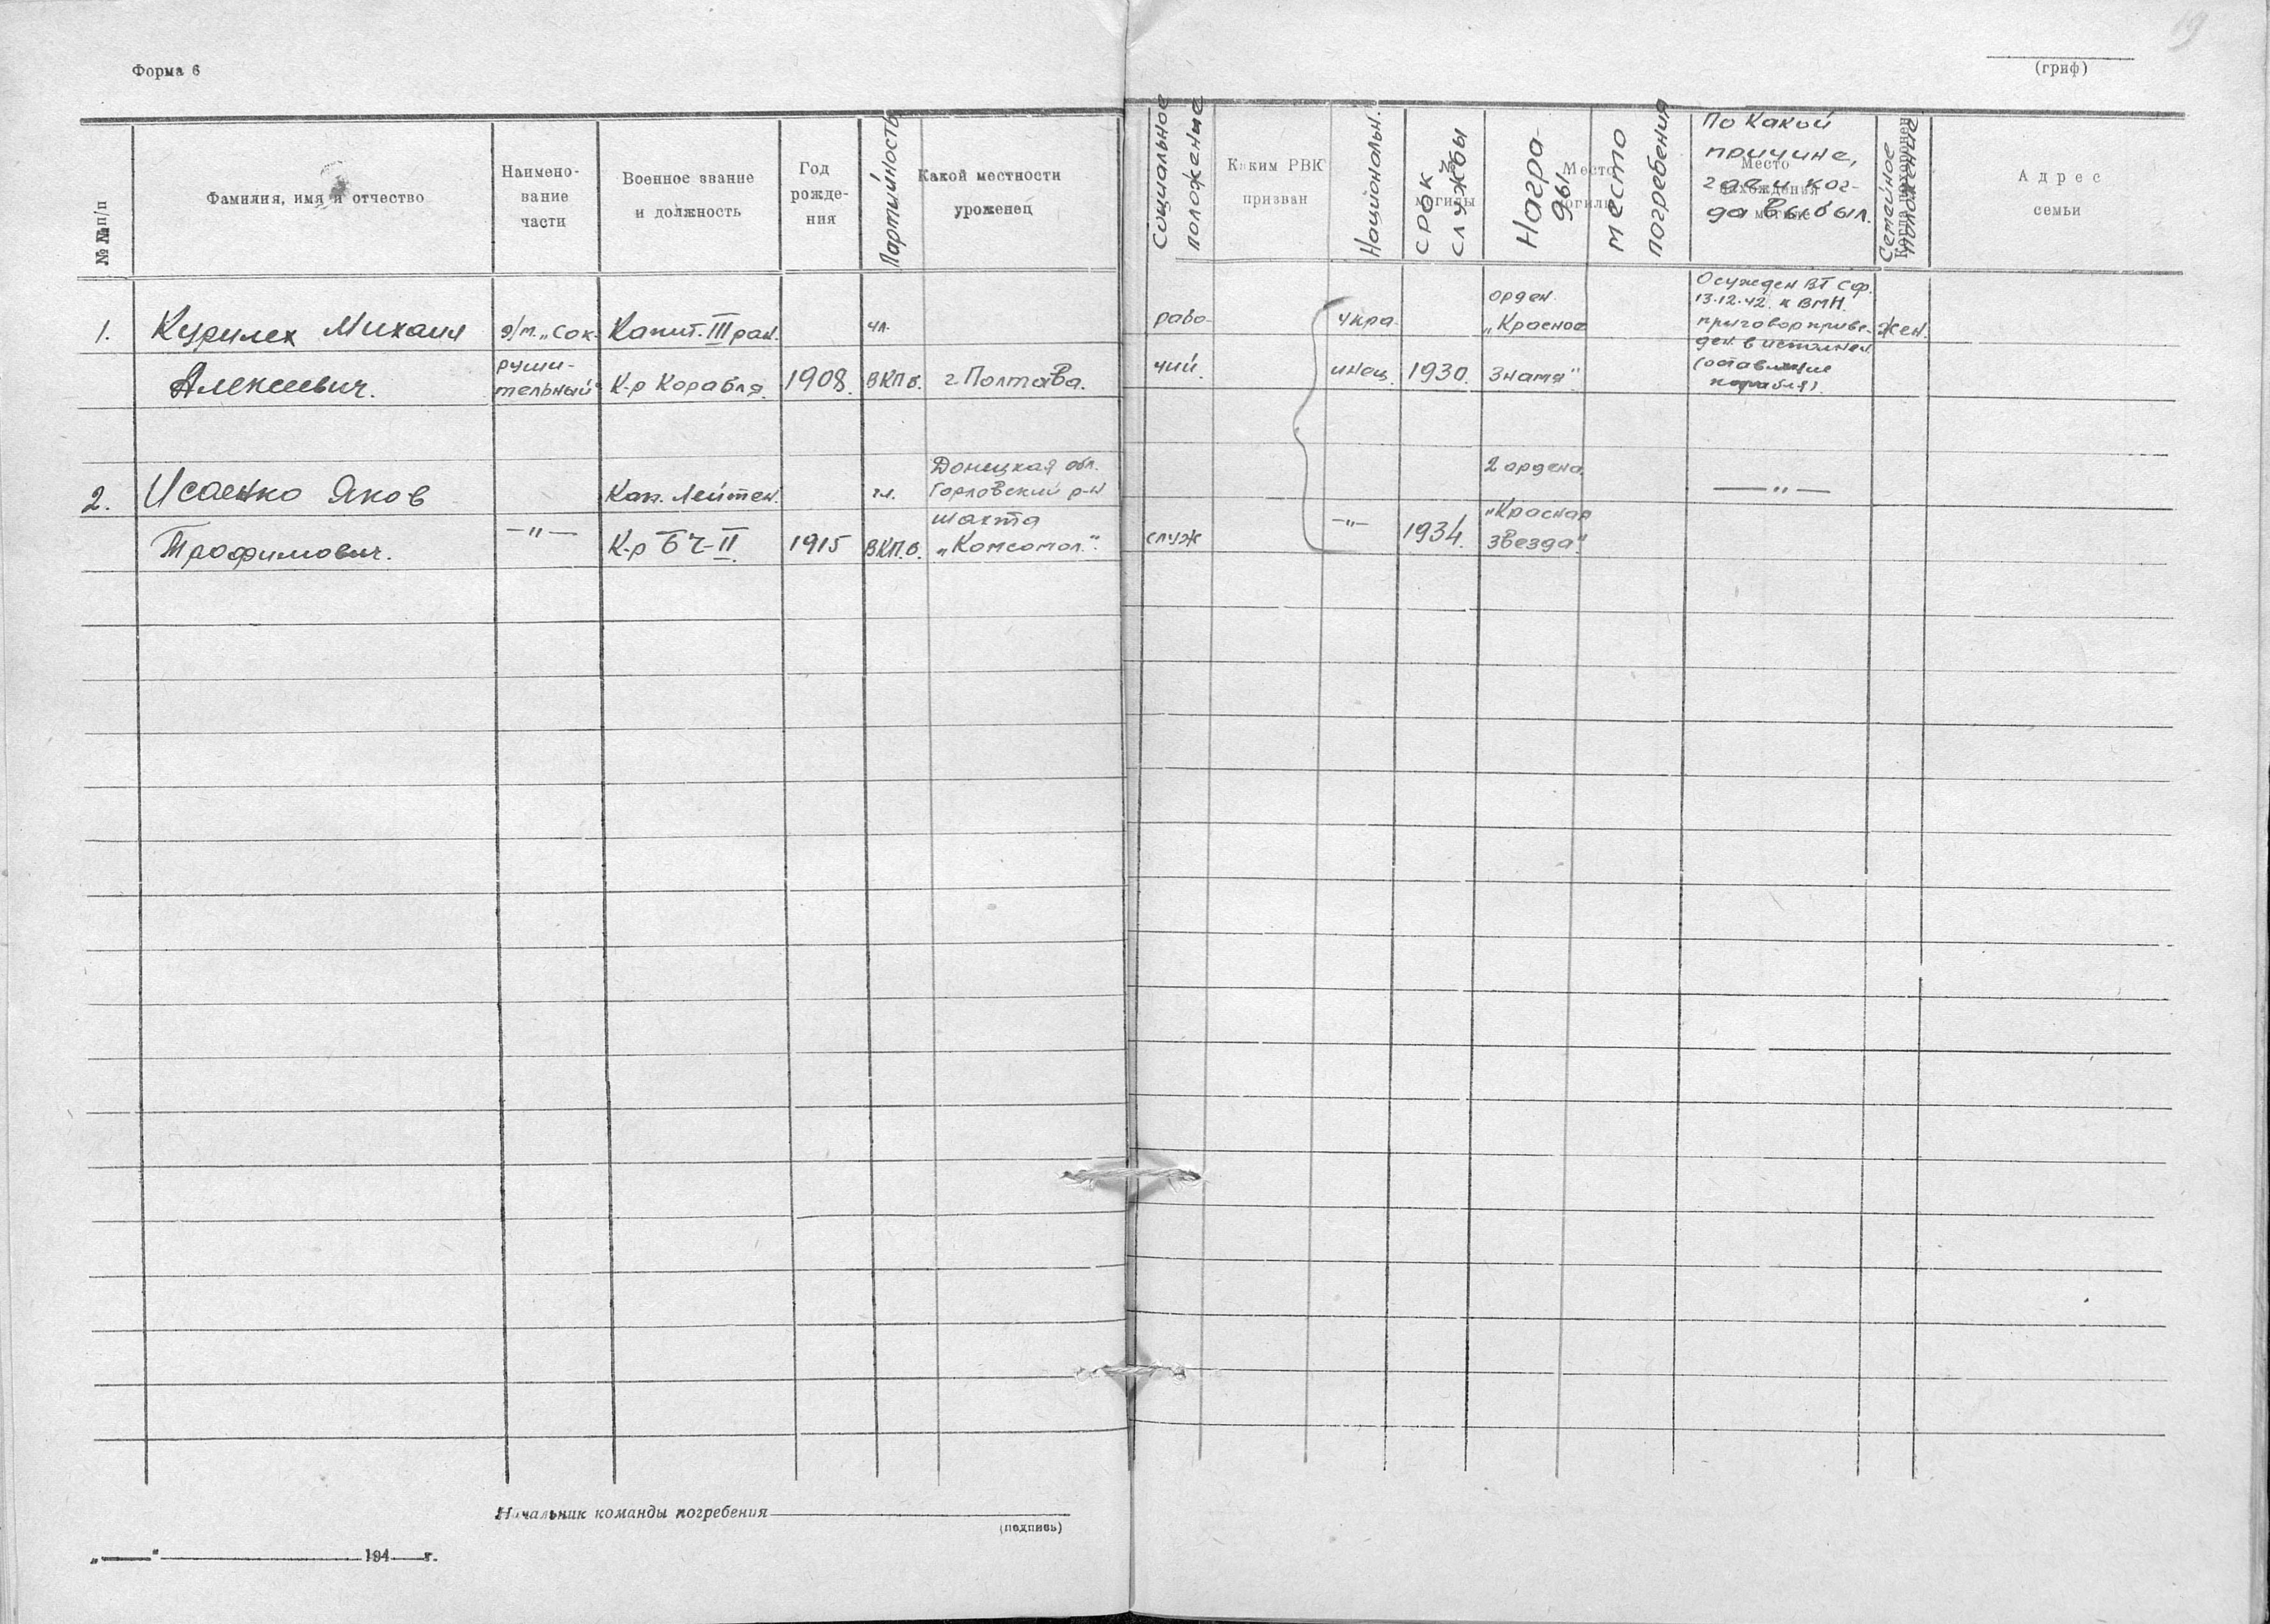 19
Форма 6
(гриф)
№№ п/п
Фамилия, имя и отчество
Наимено-
вание
части
Военное звание
и должность
Год
рожде-
ния
Партийность
Какой местности
уроженец
Социальное
положение
Каким РВК
призван
Национальн.
Срок
службы
№
могилы
Награ-
ды
Место
могилы
место
погребения
По какой
причине,
где и ког-
да выбыл.
Место
нахождения
могилы
Семейное
положение
Когда похоронен
Адрес
семьи
1.
Курилех Михаил
Алексеевич.
э/м. „Сок-
руши-
тельный"
Капит. III ран.
К-р Корабля.
1908.
чл.
ВКПб.
г. Полтава.
рабо-
чий.
укра-
инец.
1930.
орден
„Красное
Знамя".
Осужден ВТ СФ.
13.12.42. к ВМН.
приговор приве-
ден. в исполнен.
(оставление
корабля).
жен.
2.
Исаенко Яков
Трофимович.
—"—
Кап. Лейтен.
К-р БЧ-II.
1915
чл.
ВКП.б.
Донецкая обл.
Горловский р-н
шахта
„Комсомол".
служ
—"—
1934.
2 ордена
„Красная
звезда".
—"—
Начальник команды погребения
(подпись)
„ " 194 г.